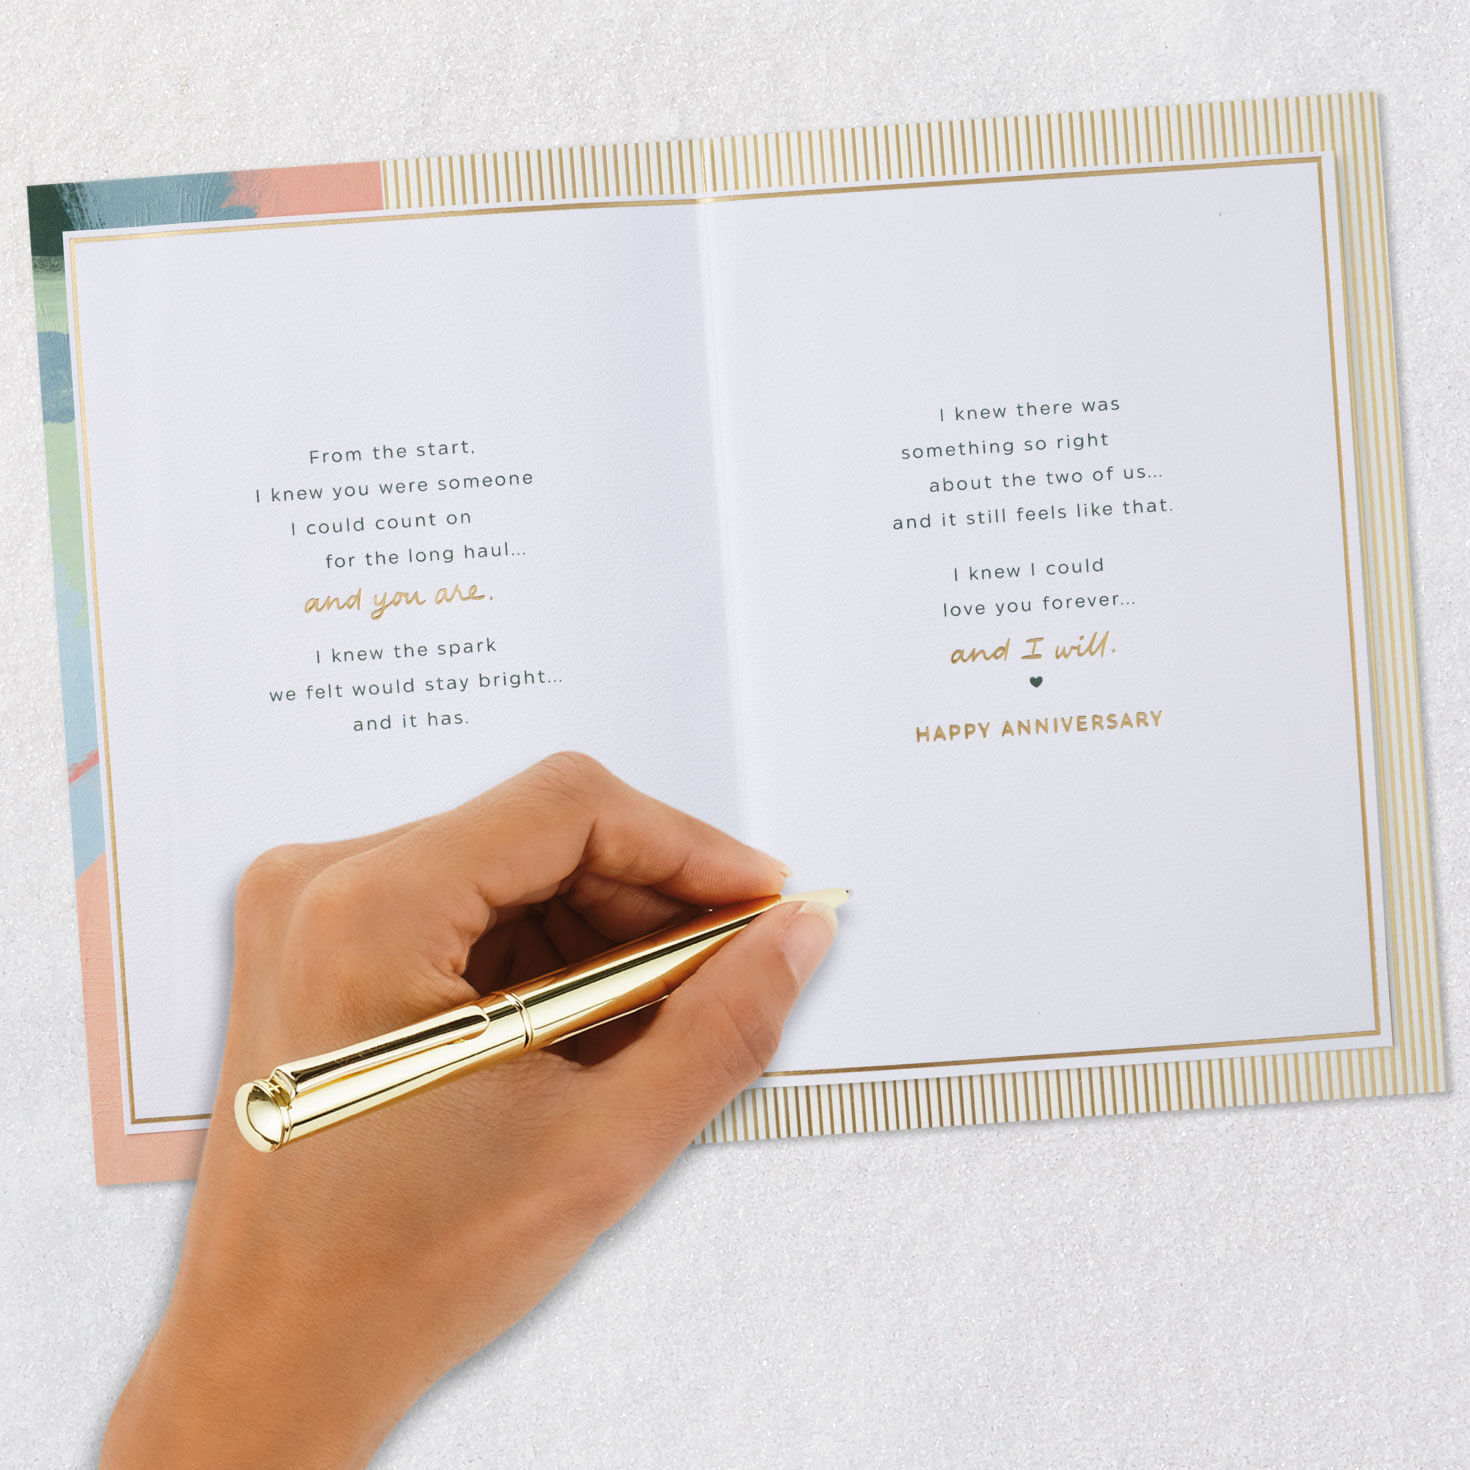 From the start,
I knew you were someone
I could count on
for the long haul...
and you are.
I knew the spark
we felt would stay bright...
and it has.
I knew there was
something so right
about the two of us...
and it still feels like that.
I knew I could
love you forever...
and I will.
HAPPY ANNIVERSARY